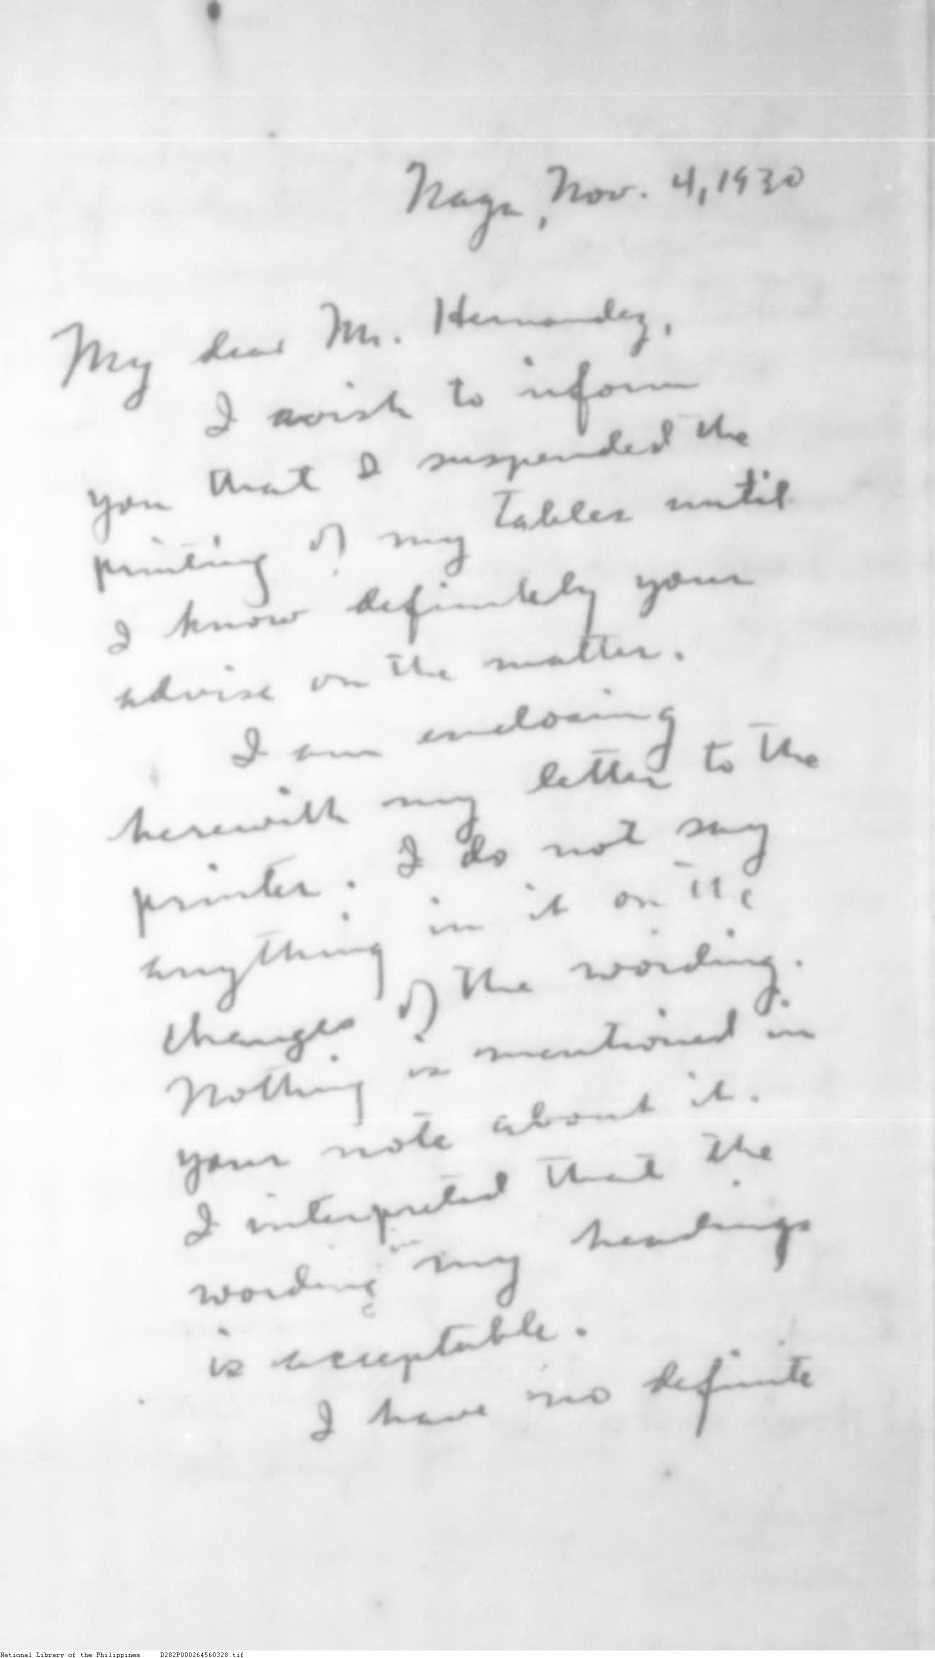 Naga, Nov. 4, 1930
My dear Mr. Hernandez,
I wish to inform
you that I suspended the
printing of my tables until
I know definitely your
advise on the matter.
I am enclosing
herewith my letter to the
printer. I do not say
anything in it on the
changes of the wording.
Nothing is mentioned in
your note about it.
I interpreted that the
wording in my headings
is acceptable.
I have no definite
National Library of the Philippines D282P000264560328.tif